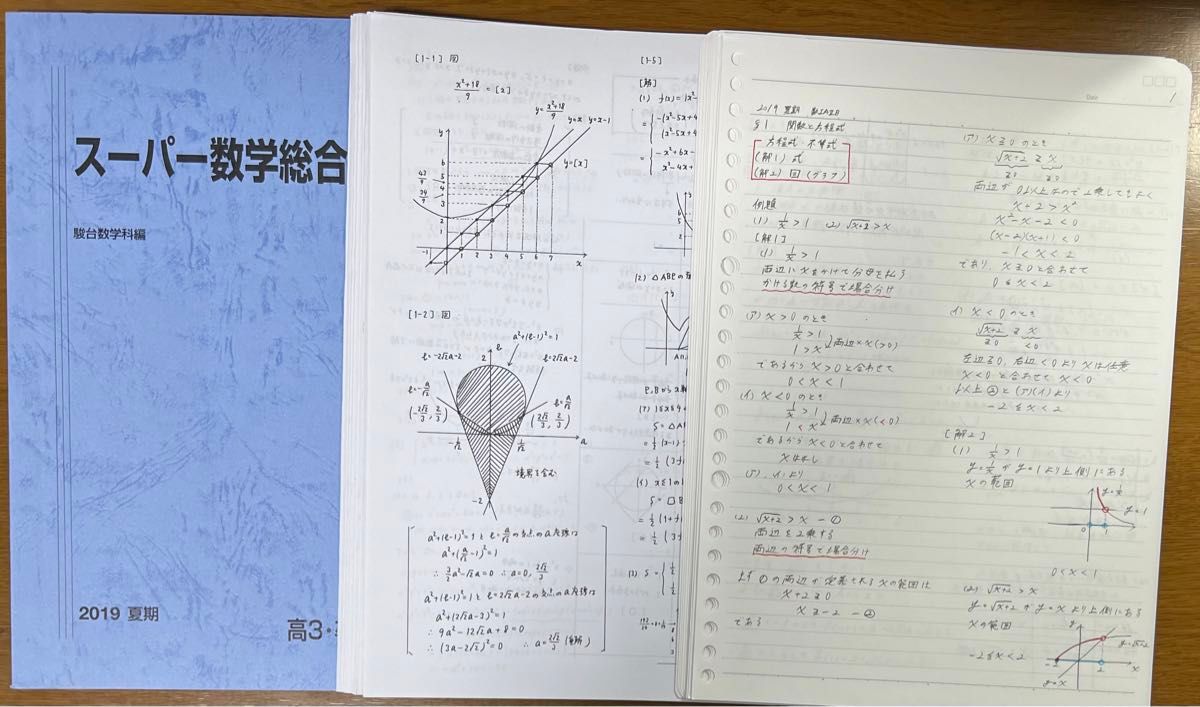 スーパー数学総合
駿台数学科編
2019 夏期
高3・
[1-1] 図
x²+18/9 = [x]
y=x²+18/9
y=x
y=x-1
y=[x]
y
6
5
4
3
2
1
-1
1 2 3 4 5 6 7
x
[1-2] 図
a²+(b-1)²=1
b=-2√2a-2
b=2√2a-2
b
2
b=-a/√2
b=a/√2
(-2√2/3, 2/3)
(2√2/3, 2/3)
-1/√2
1/√2
a
-2
境界を含む
a²+(b-1)²=1 と b=a/√2 の交点の a 座標は
a²+(a/√2-1)²=1
∴ 3/2a²-√2a=0 ∴ a=0, 2√2/3
a²+(b-1)²=1 と b=2√2a-2 の交点の a 座標は
a²+(2√2a-3)²=1
∴ 9a²-12√2a+8=0
∴ (3a-2√2)²=0 ∴ a=2√2/3 (重解)
[1-5]
[解]
(1) f(x)=|x²-
={-(x²-5x+4
(x²-5x+4
={-x²+6x-
x²-4x+
(2) △ABPの
y
P,Bから x
(ア) 1≤x≤4
S=△AP
=1/2(x-1)
=1/2(3-
S=□B
=1/2(1+
=1/2(3
(3) S={
Date
1
2019 夏期 数IAIIB
§1 関数と方程式
方程式・不等式
(解1) 式
(解2) 図(グラフ)
例題
(1) 1/x>1 (2) √x+2>x
[解1]
(1) 1/x>1
両辺に x をかけて分母を払う
かける数の符号で場合分け
(ア) x>0 のとき
1/x>1
1>x 両辺×x(>0)
であるから x>0 と合わせて
0<x<1
(イ) x<0 のとき
1/x>1
1<x 両辺×x(<0)
であるから x<0 と合わせて
xはなし
(ア), (イ)より
0<x<1
(2) √x+2>x ─①
両辺を2乗する
両辺の符号で場合分け
まず①の両辺が定義される x の範囲は
x+2≥0
x≥-2 ─②
である
(ア) x≥0 のとき
√x+2 ≥ x
≥0 ≥0
両辺が0以上なので2乗してもよく
x+2>x²
x²-x-2<0
(x-2)(x+1)<0
-1<x<2
であり、x≥0と合わせて
0≤x<2
(イ) x<0 のとき
√x+2 ≥ x
≥0 <0
左辺≥0, 右辺<0より xは任意
x<0 と合わせて x<0
以上②と(ア)(イ)より
-2≤x<2
[解2]
(1) 1/x>1
y=1/x が y=1 より上側にある
xの範囲
y=1/x
y=1
0
1
0<x<1
(2) √x+2>x
y=√x+2 が y=x より上側にある
xの範囲
-2≤x<2
y
y=√x+2
-2
2
x
y=x